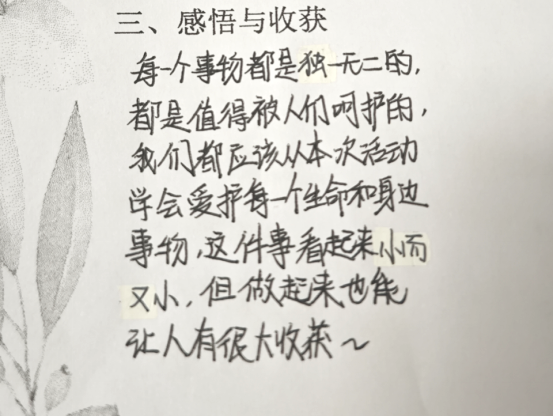 三、感悟与收获
每一个事物都是独一无二的,
都是值得被人们呵护的,
我们都应该从本次活动
学会爱护每一个生命和身边
事物,这件事看起来小而
又小,但做起来也能
让人有很大收获~